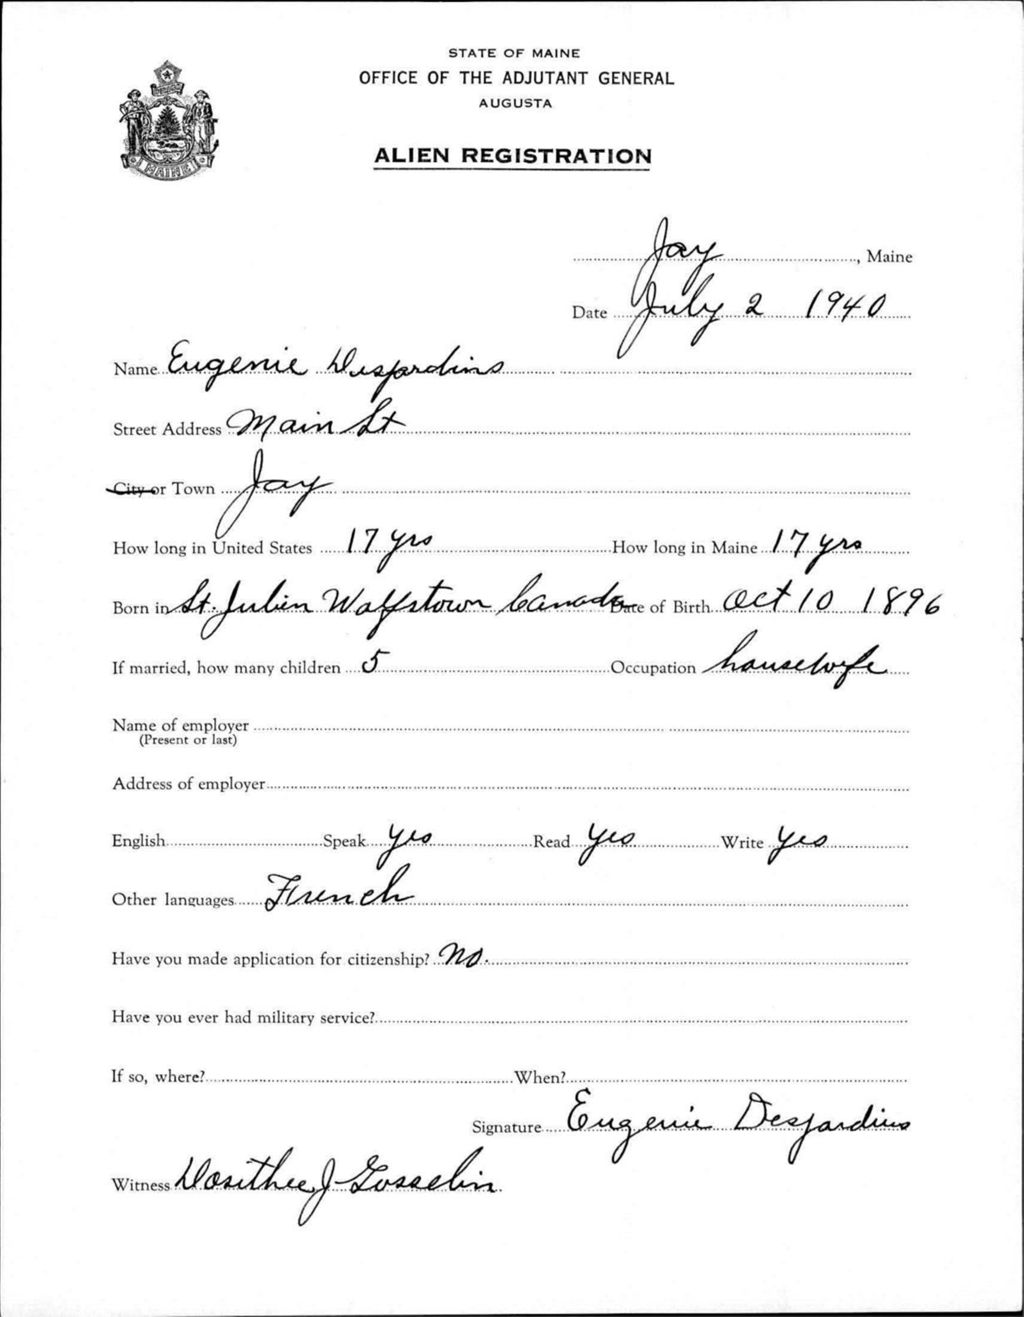 STATE OF MAINE
OFFICE OF THE ADJUTANT GENERAL
AUGUSTA
ALIEN REGISTRATION
MAINE
Jay, Maine
Date July 2 1940
Name Eugenie Desjardins
Street Address Main St
City or Town Jay
How long in United States 17 yrs How long in Maine 17 yrs
Born in St. Julien Wolfstown Canada Date of Birth Oct 10 1896
If married, how many children 5 Occupation housewife
Name of employer
(Present or last)
Address of employer
English Speak yes Read yes Write yes
Other languages French
Have you made application for citizenship? No.
Have you ever had military service?
If so, where? When?
Signature Eugenie Desjardins
Witness Dosithee J Gosselin